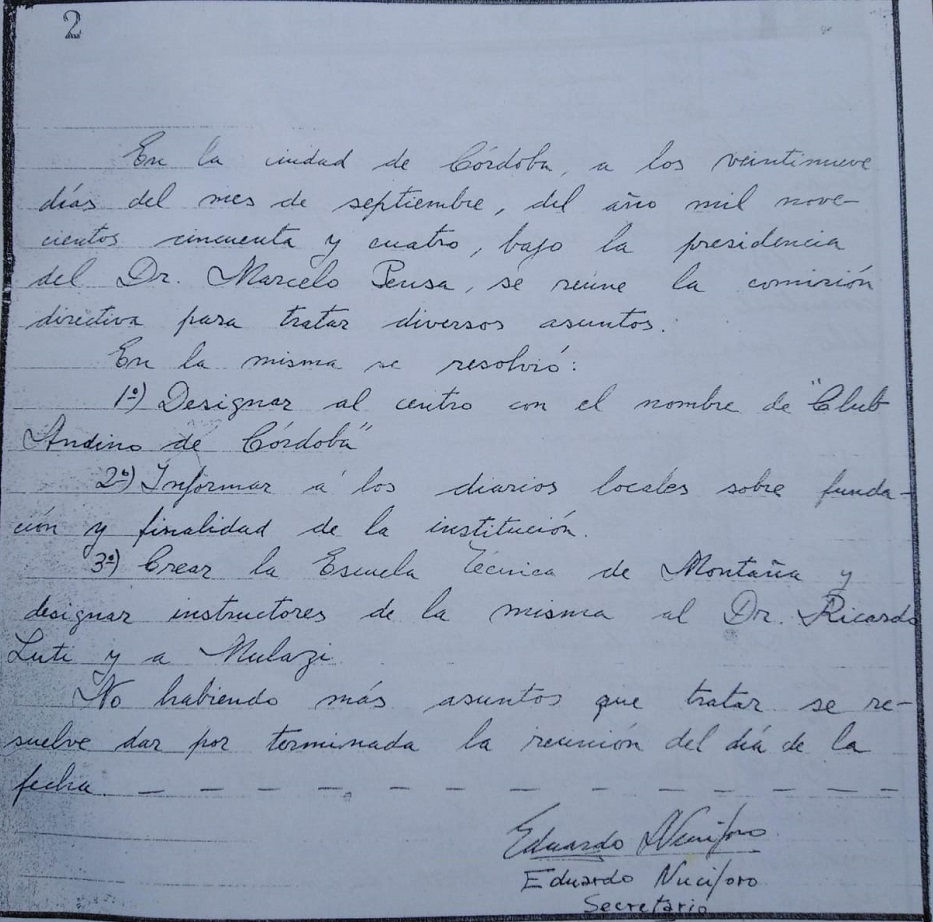 2
En la ciudad de Córdoba, a los veintinueve
días del mes de septiembre, del año mil nove-
cientos cincuenta y cuatro, bajo la presidencia
del Dr. Marcelo Pensa, se reúne la comisión
directiva para tratar diversos asuntos.
En la misma se resolvió:
1º) Designar al centro con el nombre de "Club
Andino de Córdoba"
2º) Informar a los diarios locales sobre funda-
ción y finalidad de la institución.
3º) Crear la Escuela Técnica de Montaña y
designar instructores de la misma al Dr. Ricardo
Luti y a Mulazi.
No habiendo más asuntos que tratar se re-
suelve dar por terminada la reunión del día de la
fecha. — — — — — — — — — — — — —
Eduardo Nuciforo
Eduardo Nuciforo
Secretario